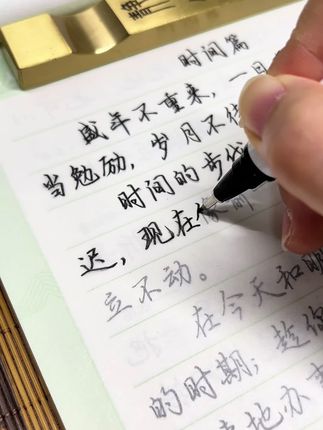 时间篇
盛年不重来，一日
当勉励，岁月不待
时间的步伐
迟，现在像前
立不动。
在今天和明
的时期；趁你
地办事